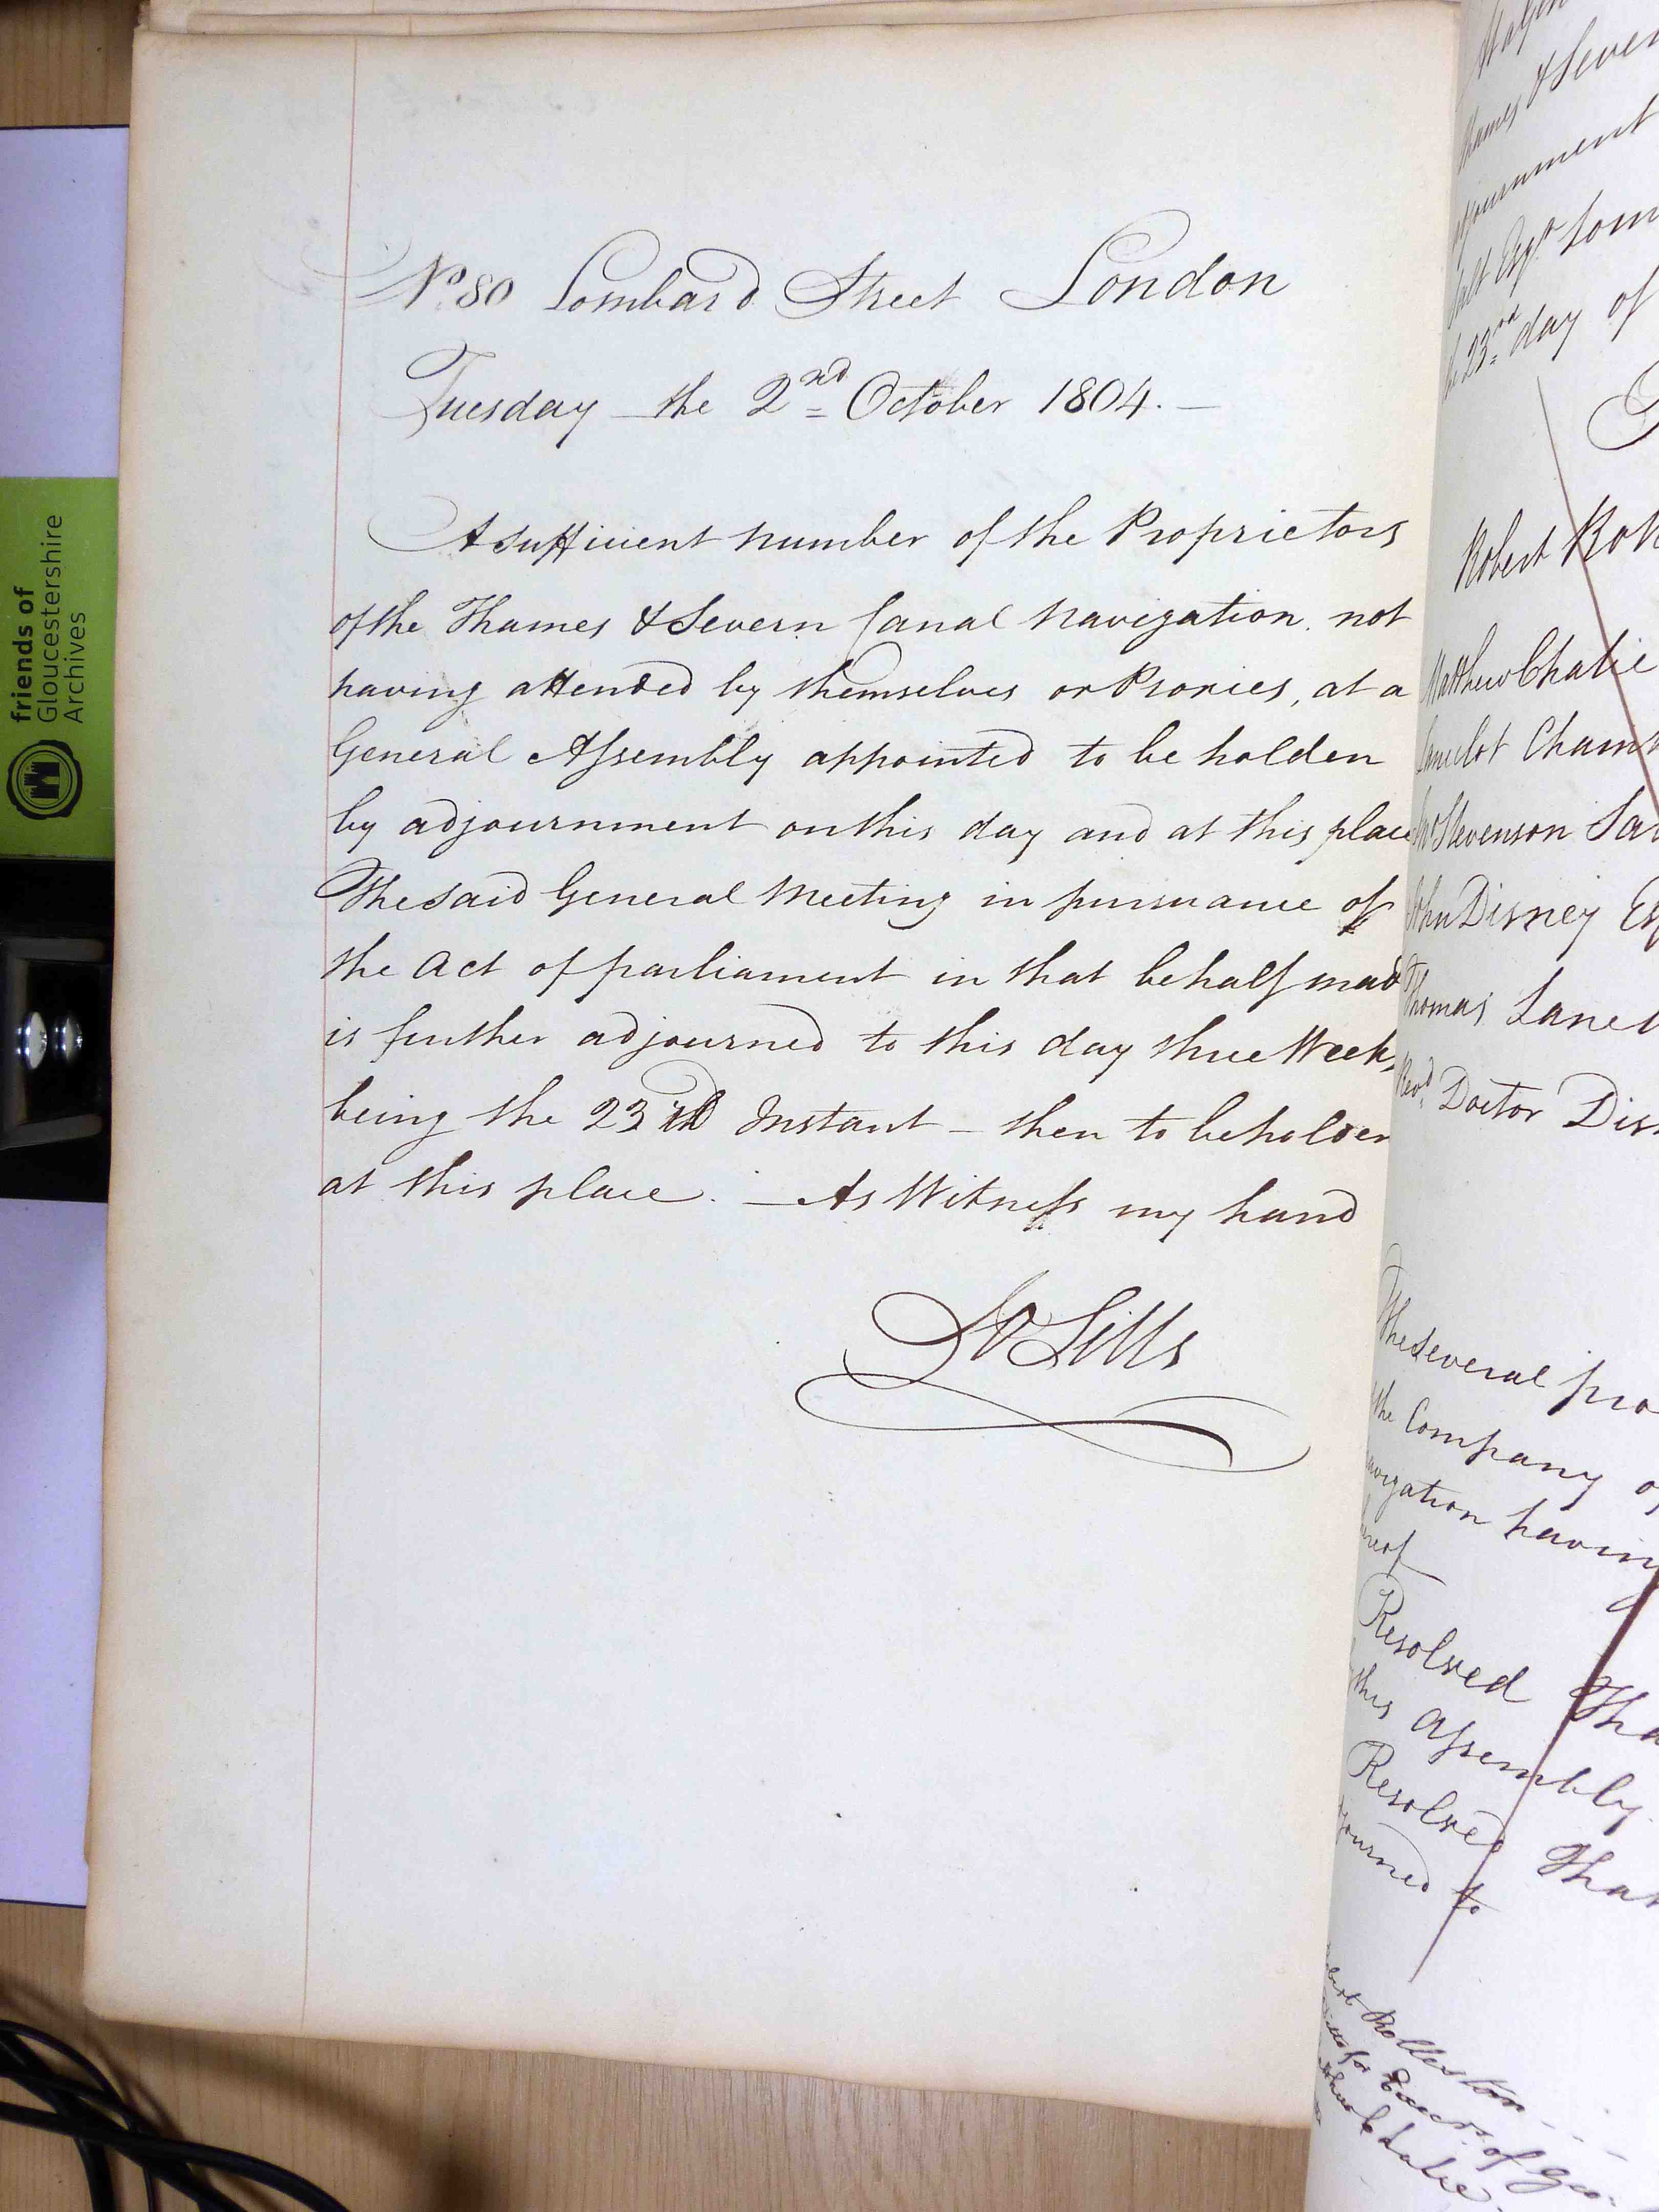 No. 80 Lombard Street London
Tuesday the 2nd October 1804. —
A sufficient number of the Proprietors
of the Thames & Severn Canal Navigation not
having attended by themselves or Proxies, at a
General Assembly appointed to be holden
by adjournment on this day and at this place
The said General Meeting in pursuance of
the Act of parliament in that behalf made
is further adjourned to this day three Weeks
being the 23rd Instant — then to be holden
at this place. — As Witness my hand
Sills
friends of
Gloucestershire
Archives
& Seve
23rd day of
Robert
Matthew Chalie
Stevenson
John Disney Es
Thomas Lane
Revd. Doctor Dis
The several pro
the Company o
having
Resolved Tha
this assembly.
Resolved That
to
Rolleston
of